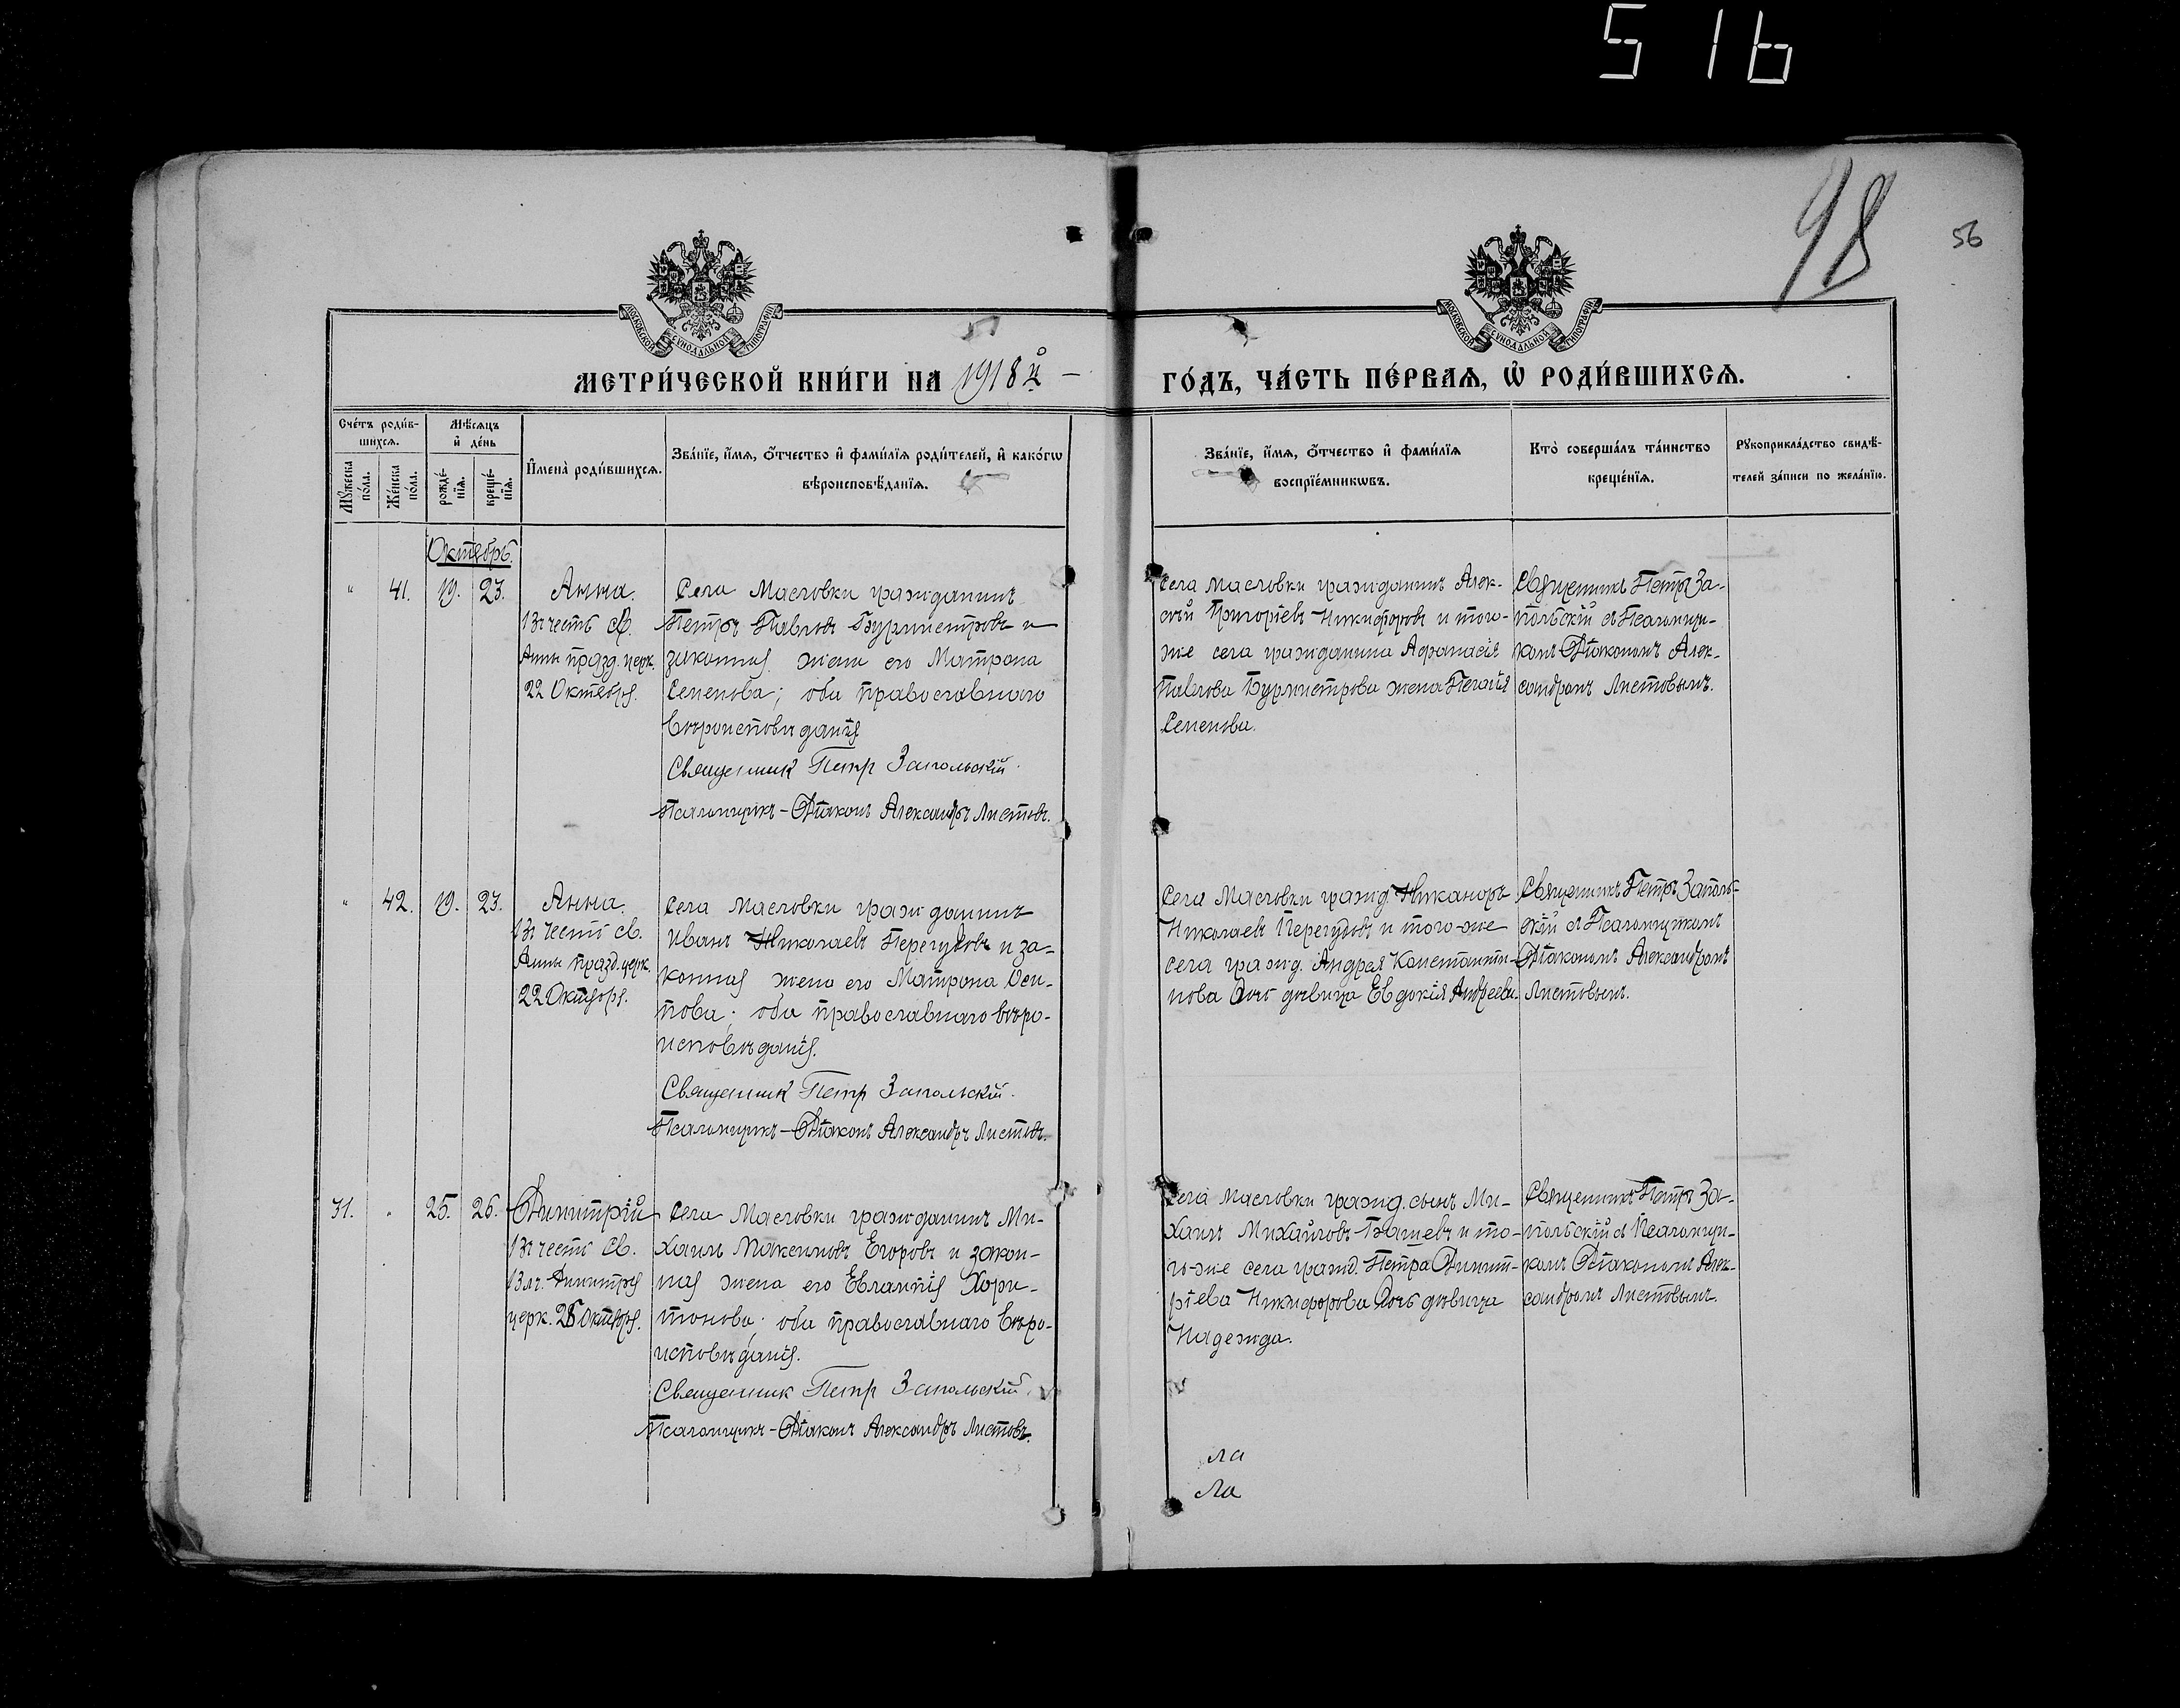 516
98
56
МОСКОВСКОЙ СѴНОДАЛЬНОЙ ТИПОГРАФІИ
МОСКОВСКОЙ СѴНОДАЛЬНОЙ ТИПОГРАФІИ
МЕТРИ́ЧЕСКОЙ КНИ́ГИ НА 1918й
ГО́ДЪ, ЧА́СТЬ ПЕ́РВАѦ, Ѽ РОДИ́ВШИХСѦ.
Сче́тъ роди́в-
шихсѧ.
Мꙋ́жеска по́ла.
Же́нска по́ла.
Мѣ́сѧцъ
и҆ де́нь
рожде́-
нїѧ.
креще́-
нїѧ.
И҆мена̀ роди́вшихсѧ.
Зва́нїе, и҆́мѧ, ѻ҆́тчество и҆ фами́лїѧ роди́телей, и҆ како́гѡ
вѣроисповѣ́данїѧ.
Зва́нїе, и҆́мѧ, ѻ҆́тчество и҆ фами́лїѧ
воспрїе́мникѡвъ.
Кто̀ соверша́лъ та́инство
креще́нїѧ.
Рꙋкоприкла́дство свидѣ́-
телей за́писи по жела́нїю.
Октябрь.
" 41. 19. 23.
Анна.
Въ честь св.
Анны празд. церк.
22 Октября.
Села Масловки гражданинъ
Петръ Павловъ Бурмистровъ и
законная жена его Матрона
Семенова; оба православнаго
вѣроисповѣданія
Священник Петр Запольскій.
Псаломщикъ-Діаконъ Александръ Листовъ.
Села Масловки гражданинъ Алек-
сѣй Григорьевъ Никифоровъ и того-
же села гражданина Афанасія
Павлова Бурмистрова жена Пелагія
Семенова.
Священникъ Петръ За-
польскій съ Псаломщи-
комъ Діакономъ Алек-
сандромъ Листовымъ.
" 42. 19. 23.
Анна.
Въ честь св.
Анны празд. церк.
22 Октября.
Села Масловки гражданинъ
Иванъ Николаевъ Перегудовъ и за-
конная жена его Матрона Оси-
пова; оба православнаго вѣро-
исповѣданія.
Священник Петр Запольскій.
Псаломщикъ-Діаконъ Александръ Листовъ.
Села Масловки гражд. Никаноръ
Николаевъ Перегудовъ и того-же
села гражд. Андрея Константи-
нова дочь дѣвица Евдокія Андреева.
Священникъ Петръ Заполь-
скій съ Псаломщикомъ
Діакономъ Александромъ
Листовымъ.
31. " 25. 26.
Димитрій
Въ честь св.
Влч. Димитрія
церк. 26 Октября.
Села Масловки гражданинъ Ми-
хаилъ Максимовъ Егоровъ и закон-
ная жена его Евлампія Хари-
тонова; оба православнаго вѣро-
исповѣданія.
Священник Петр Запольскій.
Псаломщикъ-Діаконъ Александръ Листовъ.
Села Масловки гражд. сынъ Ми-
хаилъ Михайловъ и то-
го-же села гражд. Петра Димит-
ріева Никифорова дочь дѣвица
Надежда.
Священникъ Петръ За-
польскій съ Псаломщи-
комъ Діакономъ Алек-
сандромъ Листовымъ.
ла
ла